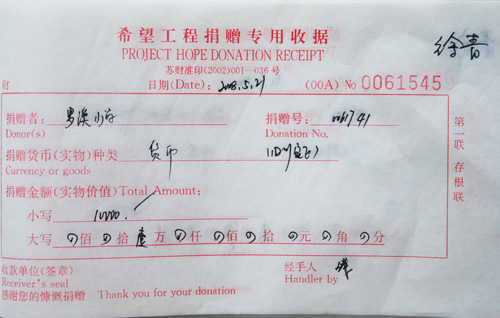 希望工程捐赠专用收据
PROJECT HOPE DONATION RECEIPT
苏财准印(2002)001—036号
财 日期(Date): 2008.5.21 (00A) No 0061545
捐赠者: 罗溪小学 捐赠号: 0061741
Donor(s) Donation No.
捐赠货币(实物)种类 货币
Currency or goods
捐赠金额(实物价值)Total Amount:
小写 10000.
大写 佰 拾 壹万 仟 佰 拾 元 角 分
收款单位(签章) 经手人
Receiver's seal Handler by
感谢您的慷慨捐赠 Thank you for your donation
第一联 存根联